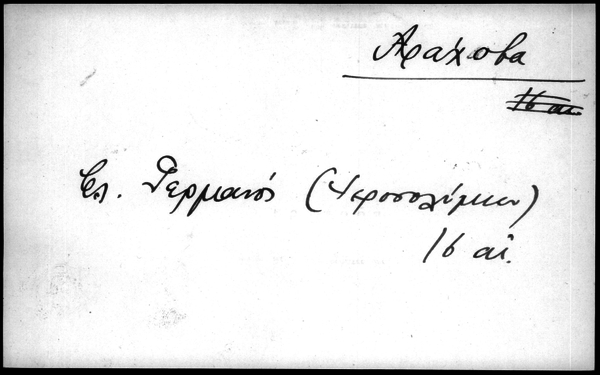 Αράχοβα
16 αι.
Επ. Γερμανός (Ιεροσολύμων)
16 αι.